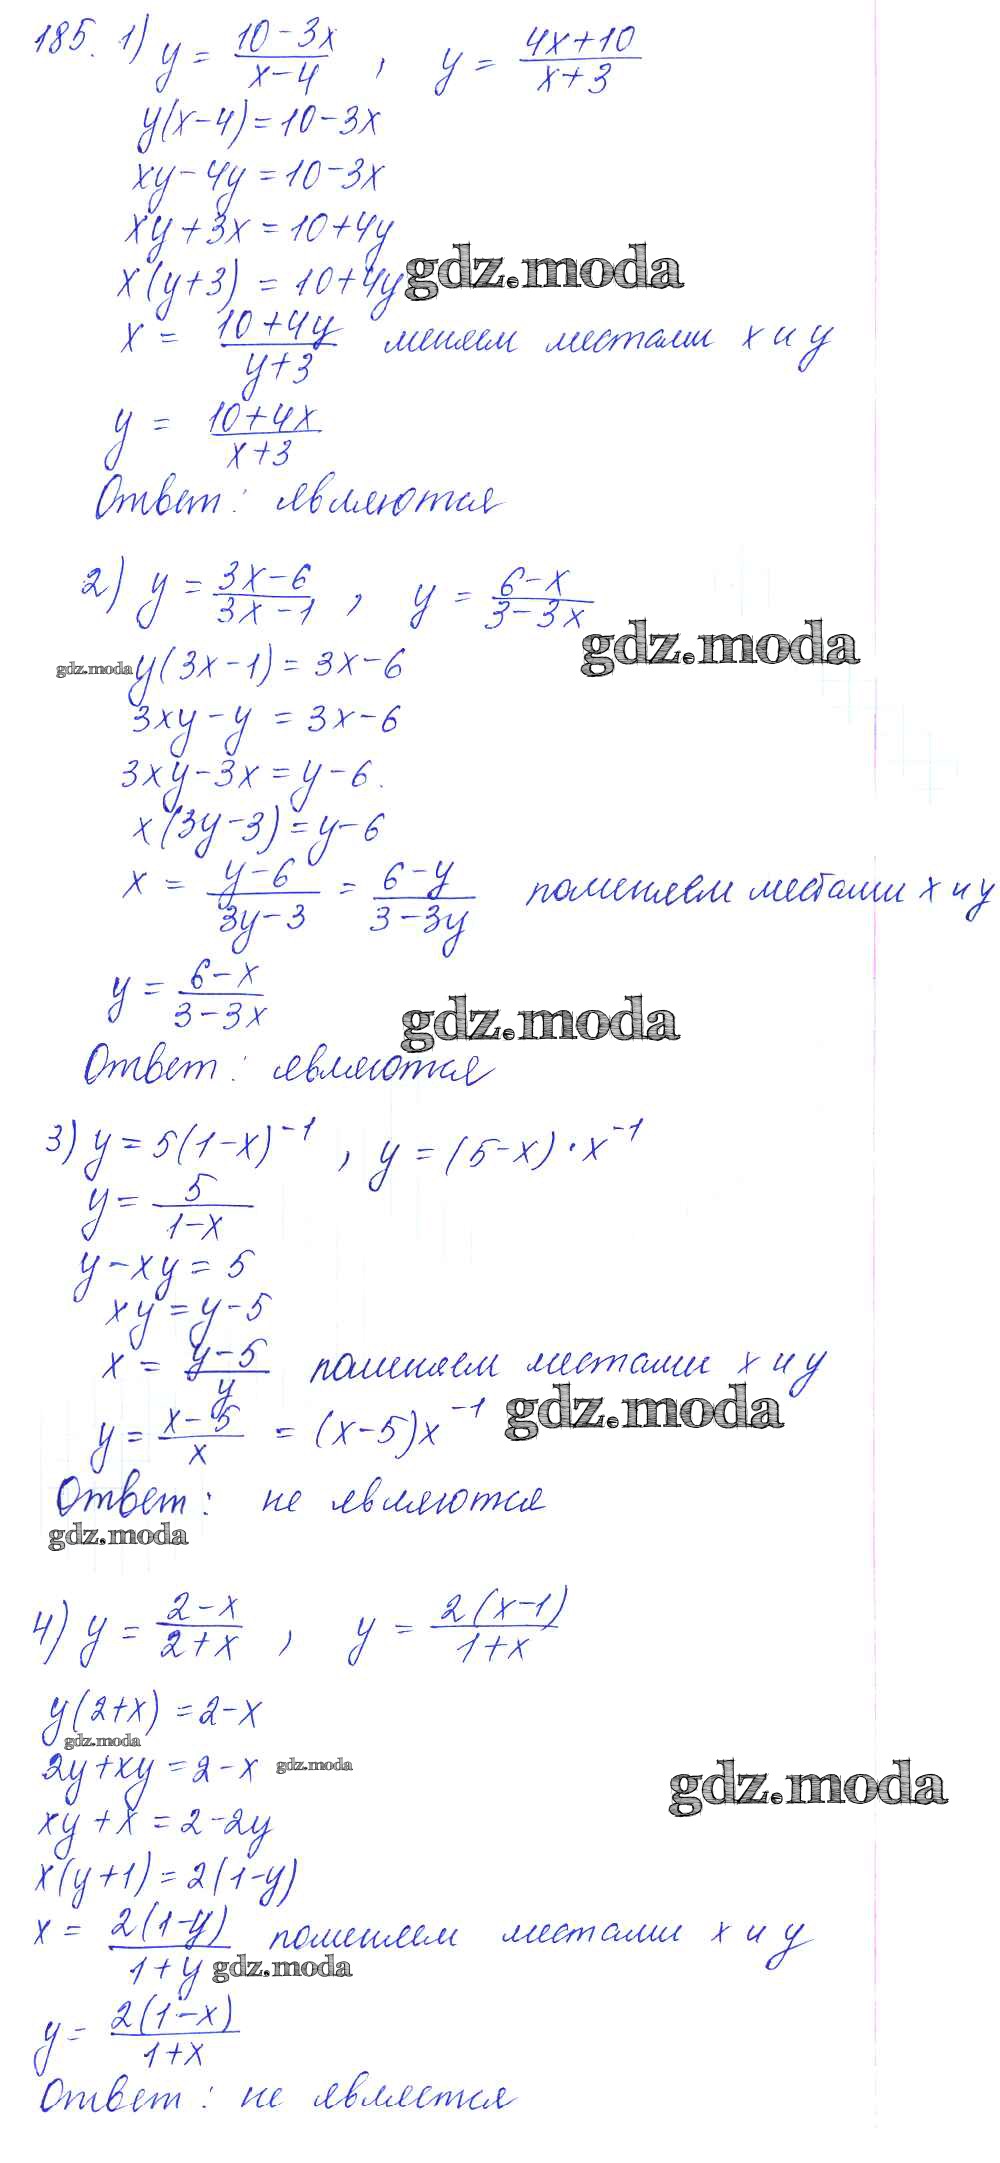 185. 1) y = (10-3x)/(x-4) , y = (4x+10)/(x+3)
y(x-4)=10-3x
xy-4y=10-3x
xy+3x=10+4y
x(y+3) = 10+4y gdz.moda
x = (10+4y)/(y+3) меняем местами x и y
y = (10+4x)/(x+3)
Ответ: являются
2) y = (3x-6)/(3x-1) , y = (6-x)/(3-3x)
gdz.moda
gdz.moda y(3x-1)=3x-6
3xy-y=3x-6
3xy-3x=y-6.
x(3y-3)=y-6
x = (y-6)/(3y-3) = (6-y)/(3-3y) поменяем местами x и y
y = (6-x)/(3-3x)
gdz.moda
Ответ: являются
3) y=5(1-x)⁻¹ , y=(5-x)·x⁻¹
y = 5/(1-x)
y-xy=5
xy=y-5
x = (y-5)/y поменяем местами x и y
y = (x-5)/x = (x-5)x⁻¹ gdz.moda
Ответ: не являются
gdz.moda
4) y = (2-x)/(2+x) , y = 2(x-1)/(1+x)
y(2+x)=2-x
gdz.moda
2y+xy=2-x gdz.moda
gdz.moda
xy+x=2-2y
x(y+1)=2(1-y)
x = 2(1-y)/(1+y) поменяем местами x и y
gdz.moda
y = 2(1-x)/(1+x)
Ответ: не является